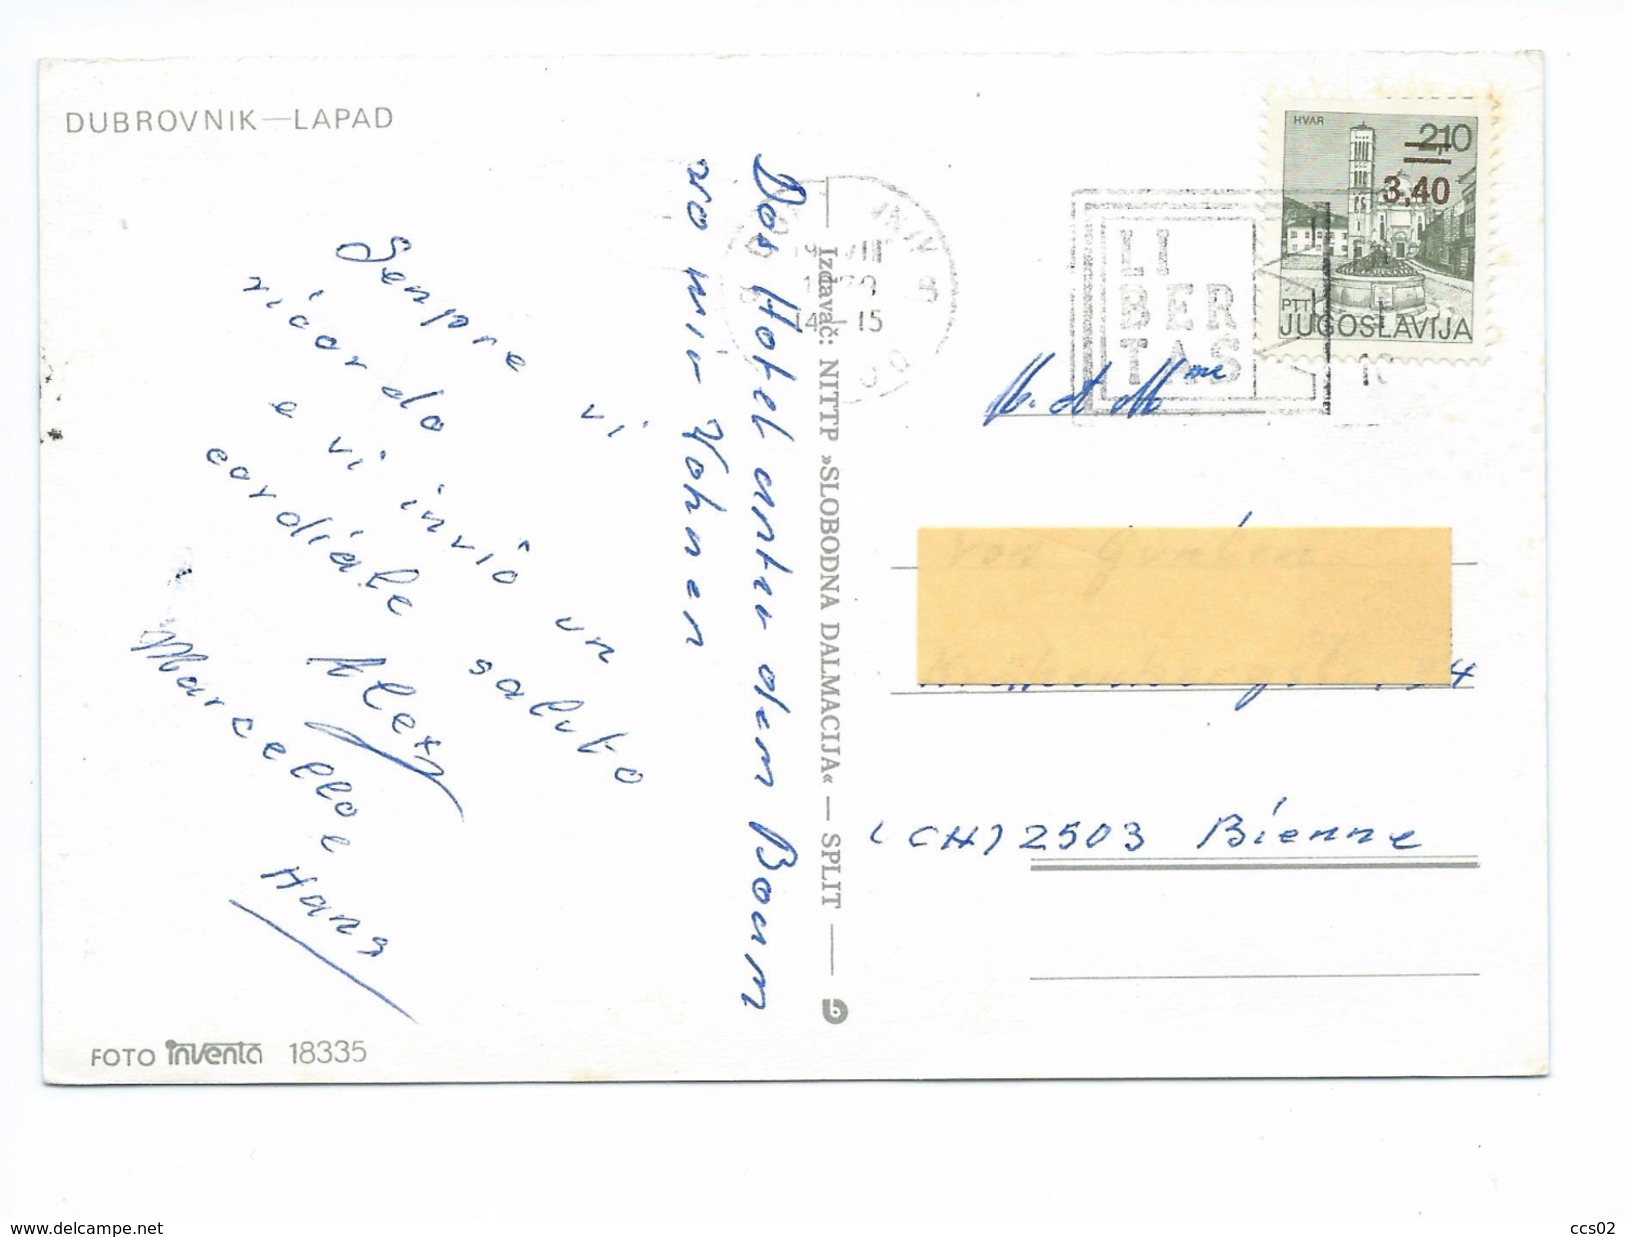 DUBROVNIK—LAPAD
Senpre vi
ricordo
e vi inviò un
cordiale saluto
Alex
Marcello e
Hans
Das Hotel
dem Baum
wo wir Wohnen
Izdavač: NITTP »SLOBODNA DALMACIJA« — SPLIT
LI
BER
TAS
VIII
14 - 15
HVAR
2,10
3,40
PTT
JUGOSLAVIJA
M. et Mme
von Gunten
(CH) 2503 Bienne
FOTO inventa 18335
www.delcampe.net
ccs02